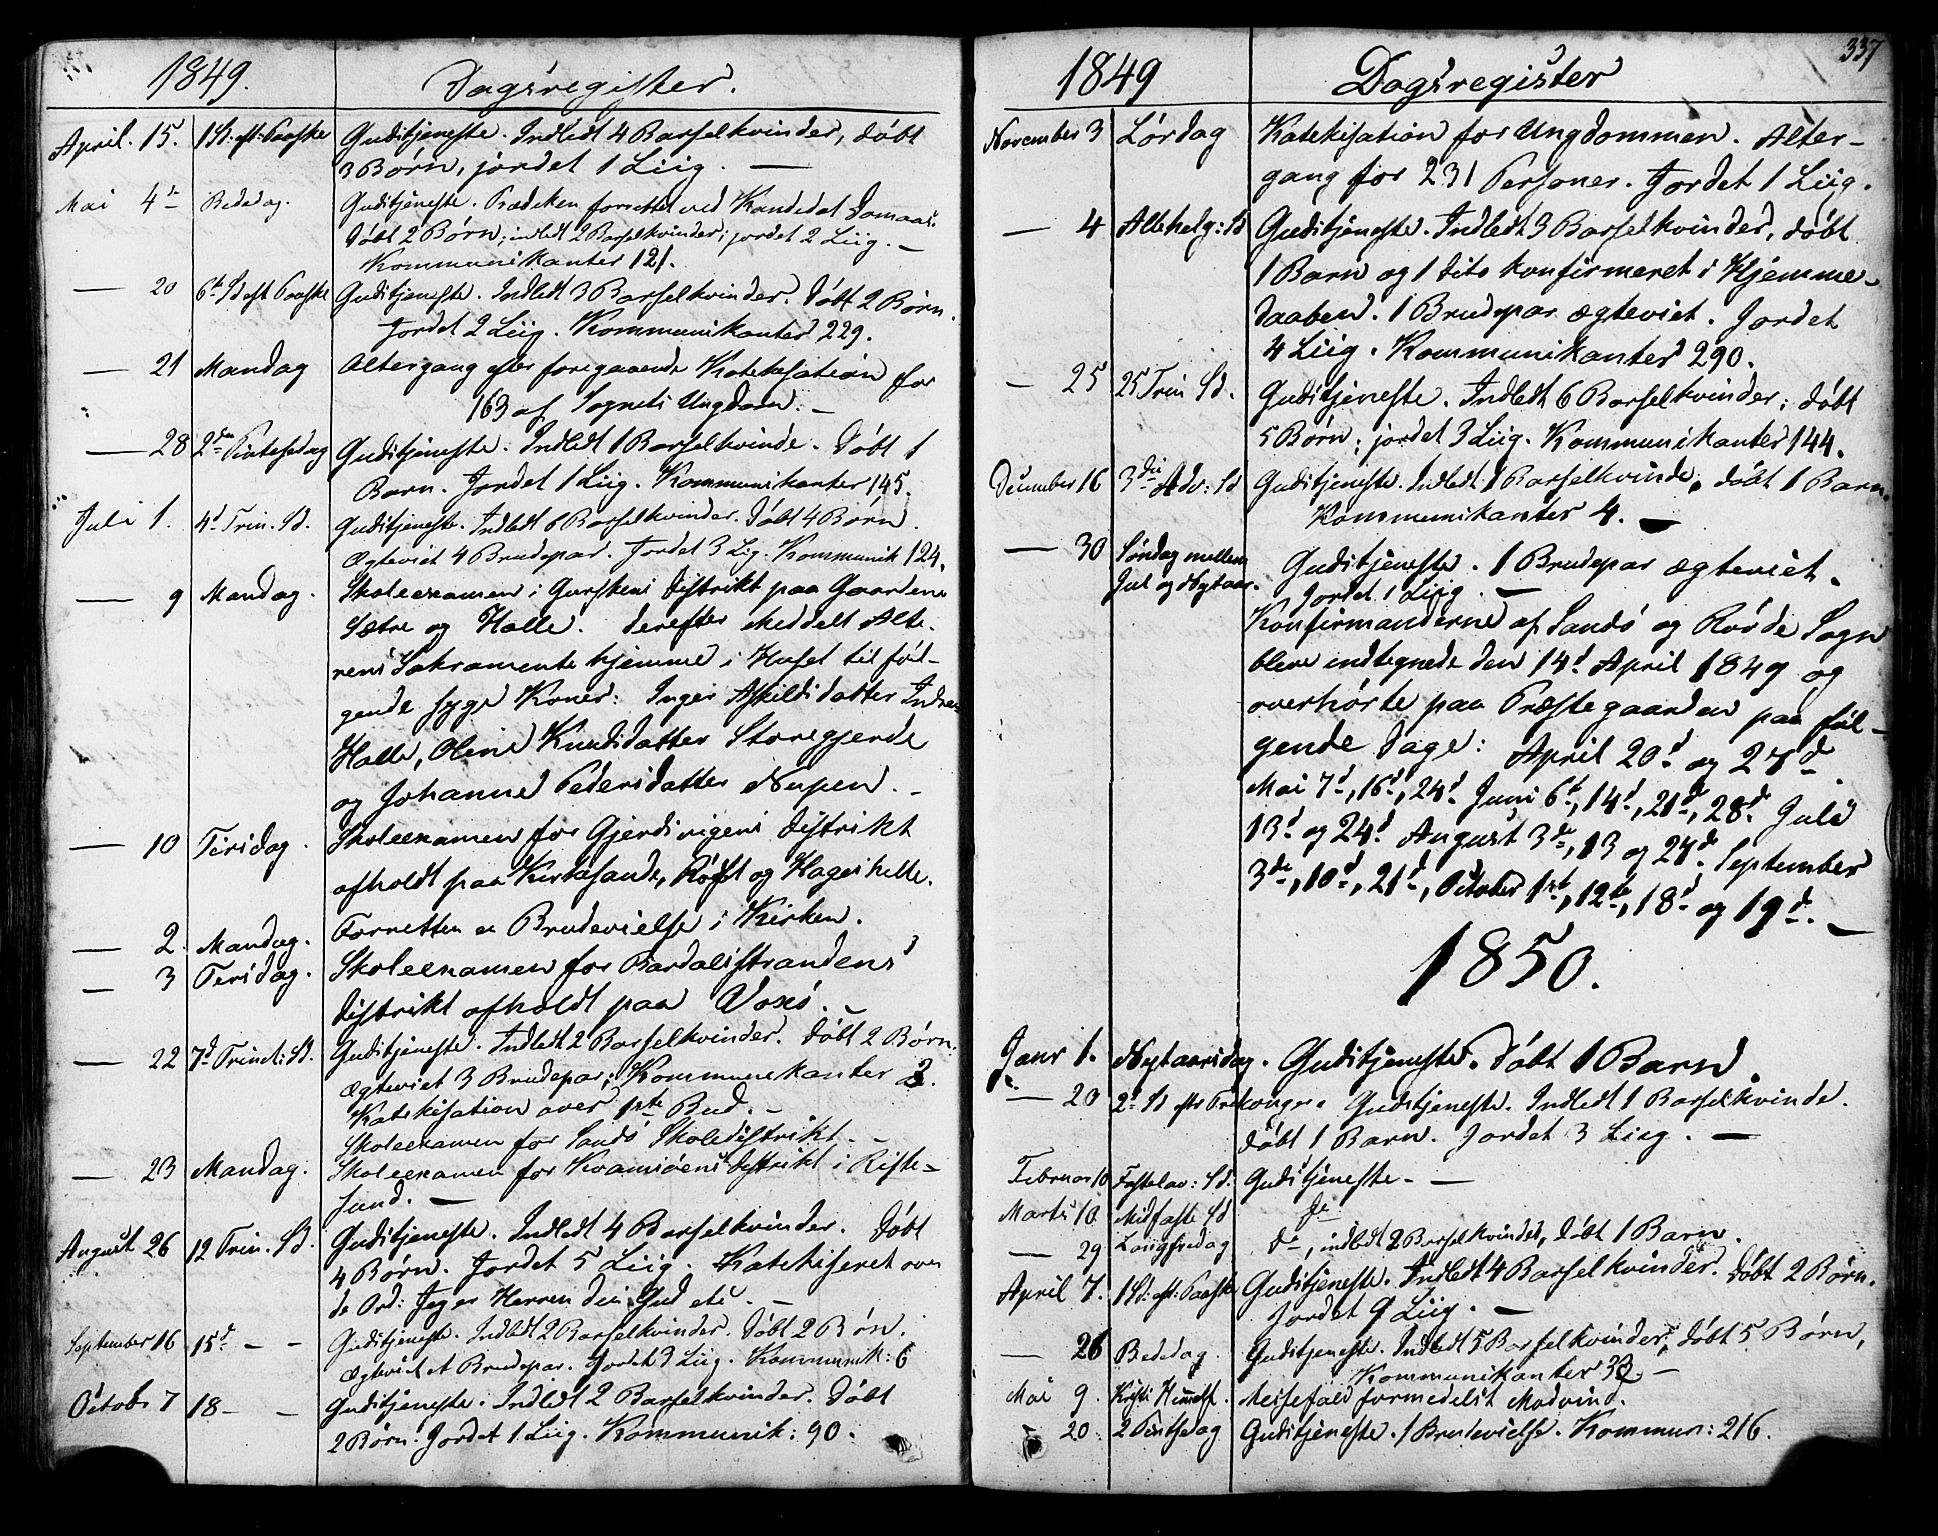 1849. Dagsregister.
April. 15. 1 Sd: eft: Paaske Gudstjeneste. Indledt 4 Barselkvinder, døbt
3 Børn, jordet 1 Liig. —
Mai 4de Bededag. Gudstjeneste. Prædiken forrettet ved Kandidat Domaas.
Døbt 2 Børn; indledt 2 Barselkvinder; jordet 2 Liig. —
Kommunikanter 121.
— 20 6te Sd eft Paaske Gudstjeneste. Indledt 3 Barselkvinder. Døbt 2 Børn.
Jordet 2 Liig. Kommunikanter 229.
— 21 Mandag Altergang efter foregaaende Katekisation for
163 af Sognets Ungdom. —
— 28 2den Pintsedag Gudstjeneste. Indledt 1 Barselkvinde. Døbt 1
Barn. Jordet 1 Liig. Kommunikanter 145.
Juli 1. 4d Trin. Sd. Gudstjeneste. Indledt 6 Barselkvinder. Døbt 4 Børn.
Ægteviet 4 Brudepar. Jordet 3 Lig. Kommunik 124.
— 9 Mandag. Skoleexamen i Gurskens Distrikt paa Gaardene
Sætre og Halle. Derefter meddelt Alte-
rens Sakramente hjemme i Huset til føl-
gende syge Koner: Inger Askildsdatter Indre-
Halle, Oline Knudsdatter Storegjerde
og Johanne Pedersdatter Nupen. —
— 10 Tirsdag. Skoleexamen for Gjerdsvigens Distrikt
afholdt paa Kirkesande, Røyset og Hageskelle.
— 2. Mandag. Forretten en Brudevielse i Kirken.
— 3 Tirsdag. Skoleexamen for Bardalstrandens
Distrikt afholdt paa Voxsø. —
— 22 7d Trinit: Sd. Gudstjeneste. Indledt 2 Barselkvinder. Døbt 2 Børn.
Ægteviet 3 Brudepar; Kommunikanter 3.
Katekisation over 1ste Bud. —
Skoleexamen for Sandø Skoledistrikt. —
— 23 Mandag. Skoleexamen for Kvamsøens Distrikt i Riste-
sund. —
August 26 12 Trin. Sd. Gudstjeneste. Indledt 4 Barselkvinder. Døbt
4 Børn. Jordet 5 Liig. Katekiseret over
de Ord: Jeg er Herren din Gud etc. —
September 16 15d — — Gudstjeneste. Indledt 2 Barselkvinder. Døbt 2 Børn.
Ægteviet et Brudepar. Jordet 3 Liig. Kommunik: 6
Octobr 7 18 — — Gudstjeneste. Indledt 2 Barselkvinder. Døbt
2 Børn. Jordet 1 Liig. Kommunik: 90.
337
1849 Dagsregister
November 3 Lördag Katekisation for Ungdommen. Alter-
gang for 231 Personer. Jordet 1 Liig.
— 4 Allehelg: Sd Gudstjeneste. Indledt 3 Barselkvinder, døbt
1 Barn og 1 dito konfirmeret i Hjemme-
daaben. 1 Brudepar ægteviet. Jordet
4 Liig. Kommunikanter 290.
— 25 25 Trin Sd. Gudstjeneste. Indledt 6 Barselkvinder; døbt
5 Børn; jordet 3 Liig. Kommunikanter 144.
December 16 3die Adv: Sd Gudstjeneste. Indledt 1 Barselkvinde, døbt 1 Barn.
Kommunikanter 4. —
— 30 Söndag mellem Gudstjeneste. 1 Brudepar ægteviet.
Jul og Nytaar. Jordet 1 Liig. —
Konfirmanderne af Sandø og Røvde Sogn
bleve indtegnede den 14d April 1849 og
overhørte paa Præstegaarden paa føl-
gende Dage: April 20d og 27de.
Mai 7d, 16d, 24d. Juni 6t, 14d, 21d, 28d. Juli
13d og 24d August 3de, 13 og 27d. September
3de, 10d, 21d, October 1ste, 12te, 18d og 19d. —
1850.
Janr 1. Nytaarsdag. Gudstjeneste. Døbt 1 Barn.
— 20 2d Sd eftr Trekonger. Gudstjeneste. Indledt 1 Barselkvinde.
Døbt 1 Barn. Jordet 3 Liig. —
Februar 10 Fastelav: Sd. Gudstjeneste. —
Marts 10 Midfaste Sd Do
— 29 Langfredag Do, indledt 2 Barselkvinder, døbt 1 Barn.
April 7. 1 Sd: eft: Paaske Gudstjeneste. Indledt 4 Barselkvinder. Døbt 2 Børn.
Jordet 9 Liig. —
— 26 Bededag. Gudstjeneste. Indledt 5 Barselkvinder; døbt 5 Børn,
Kommunikanter —
Mai 9. Kristi Himmelf. Messefald formedelst Modvind.
— 20. 2 Pintsedag Gudstjeneste. 1 Brudevielse. Kommun: 216.